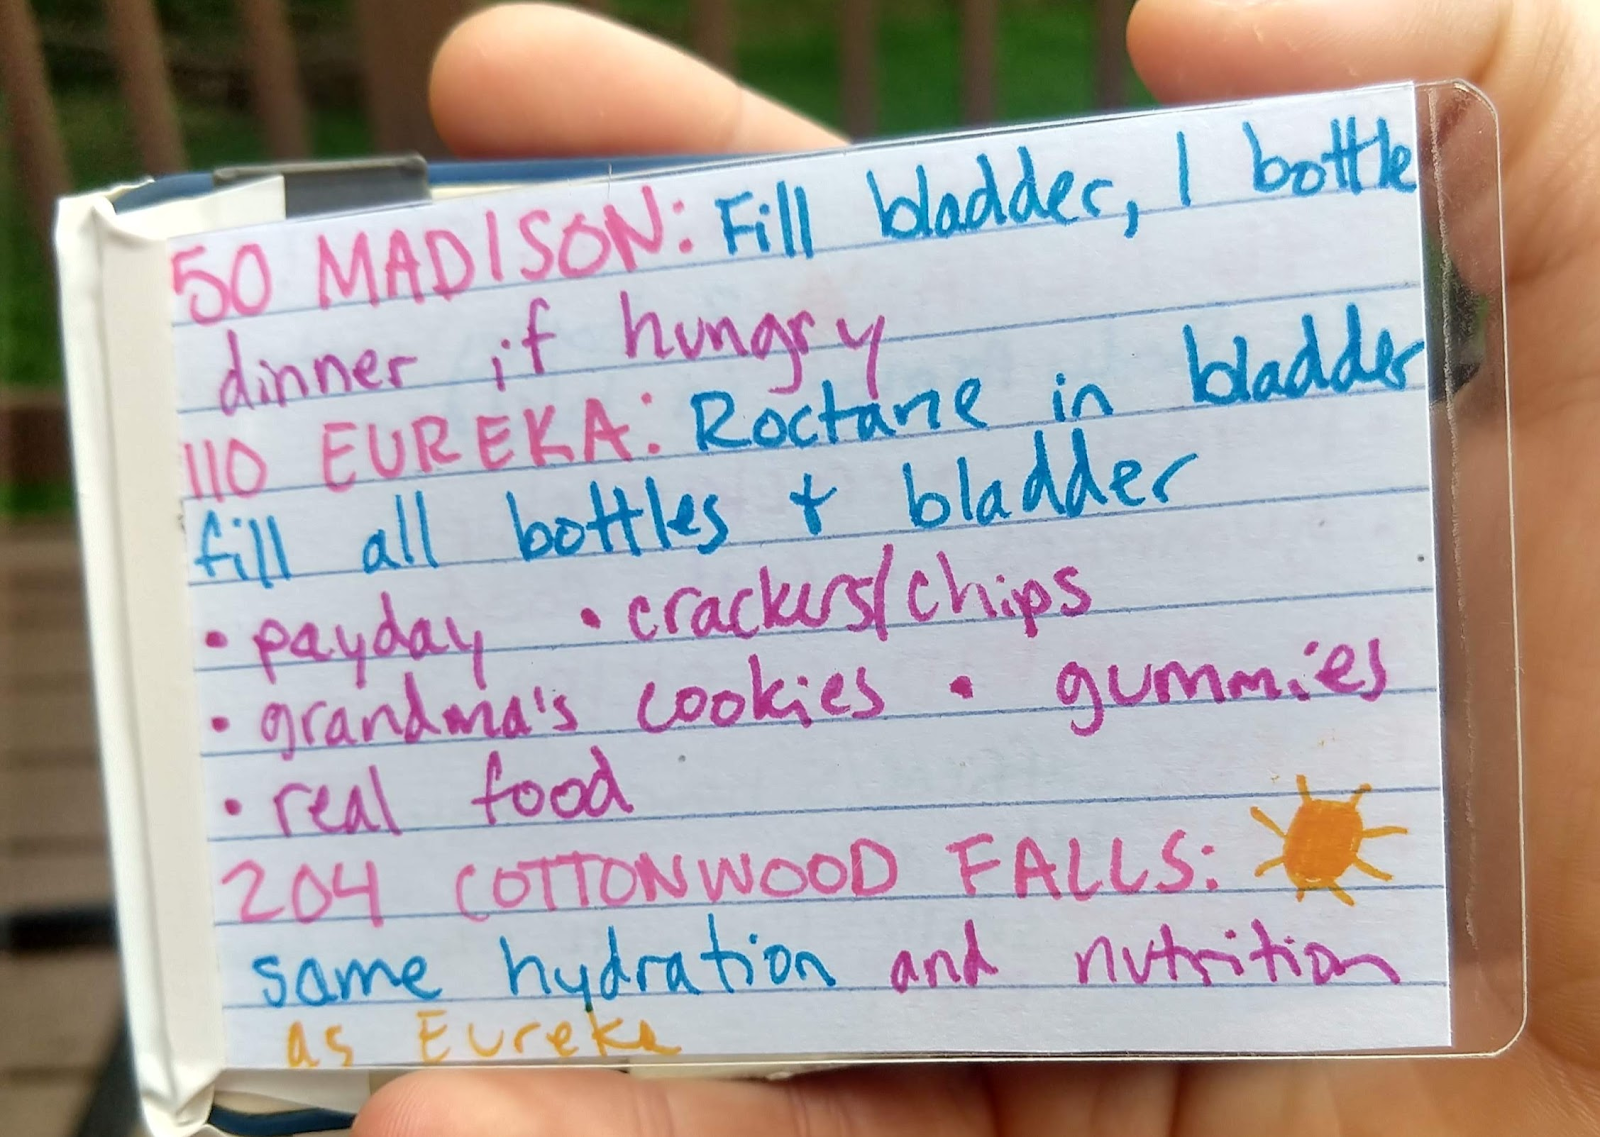 50 MADISON: Fill bladder, 1 bottle
dinner if hungry
110 EUREKA: Roctane in bladder
fill all bottles + bladder
• payday • crackers/chips
• grandma's cookies • gummies
• real food
204 COTTONWOOD FALLS:
same hydration and nutrition
as Eureka